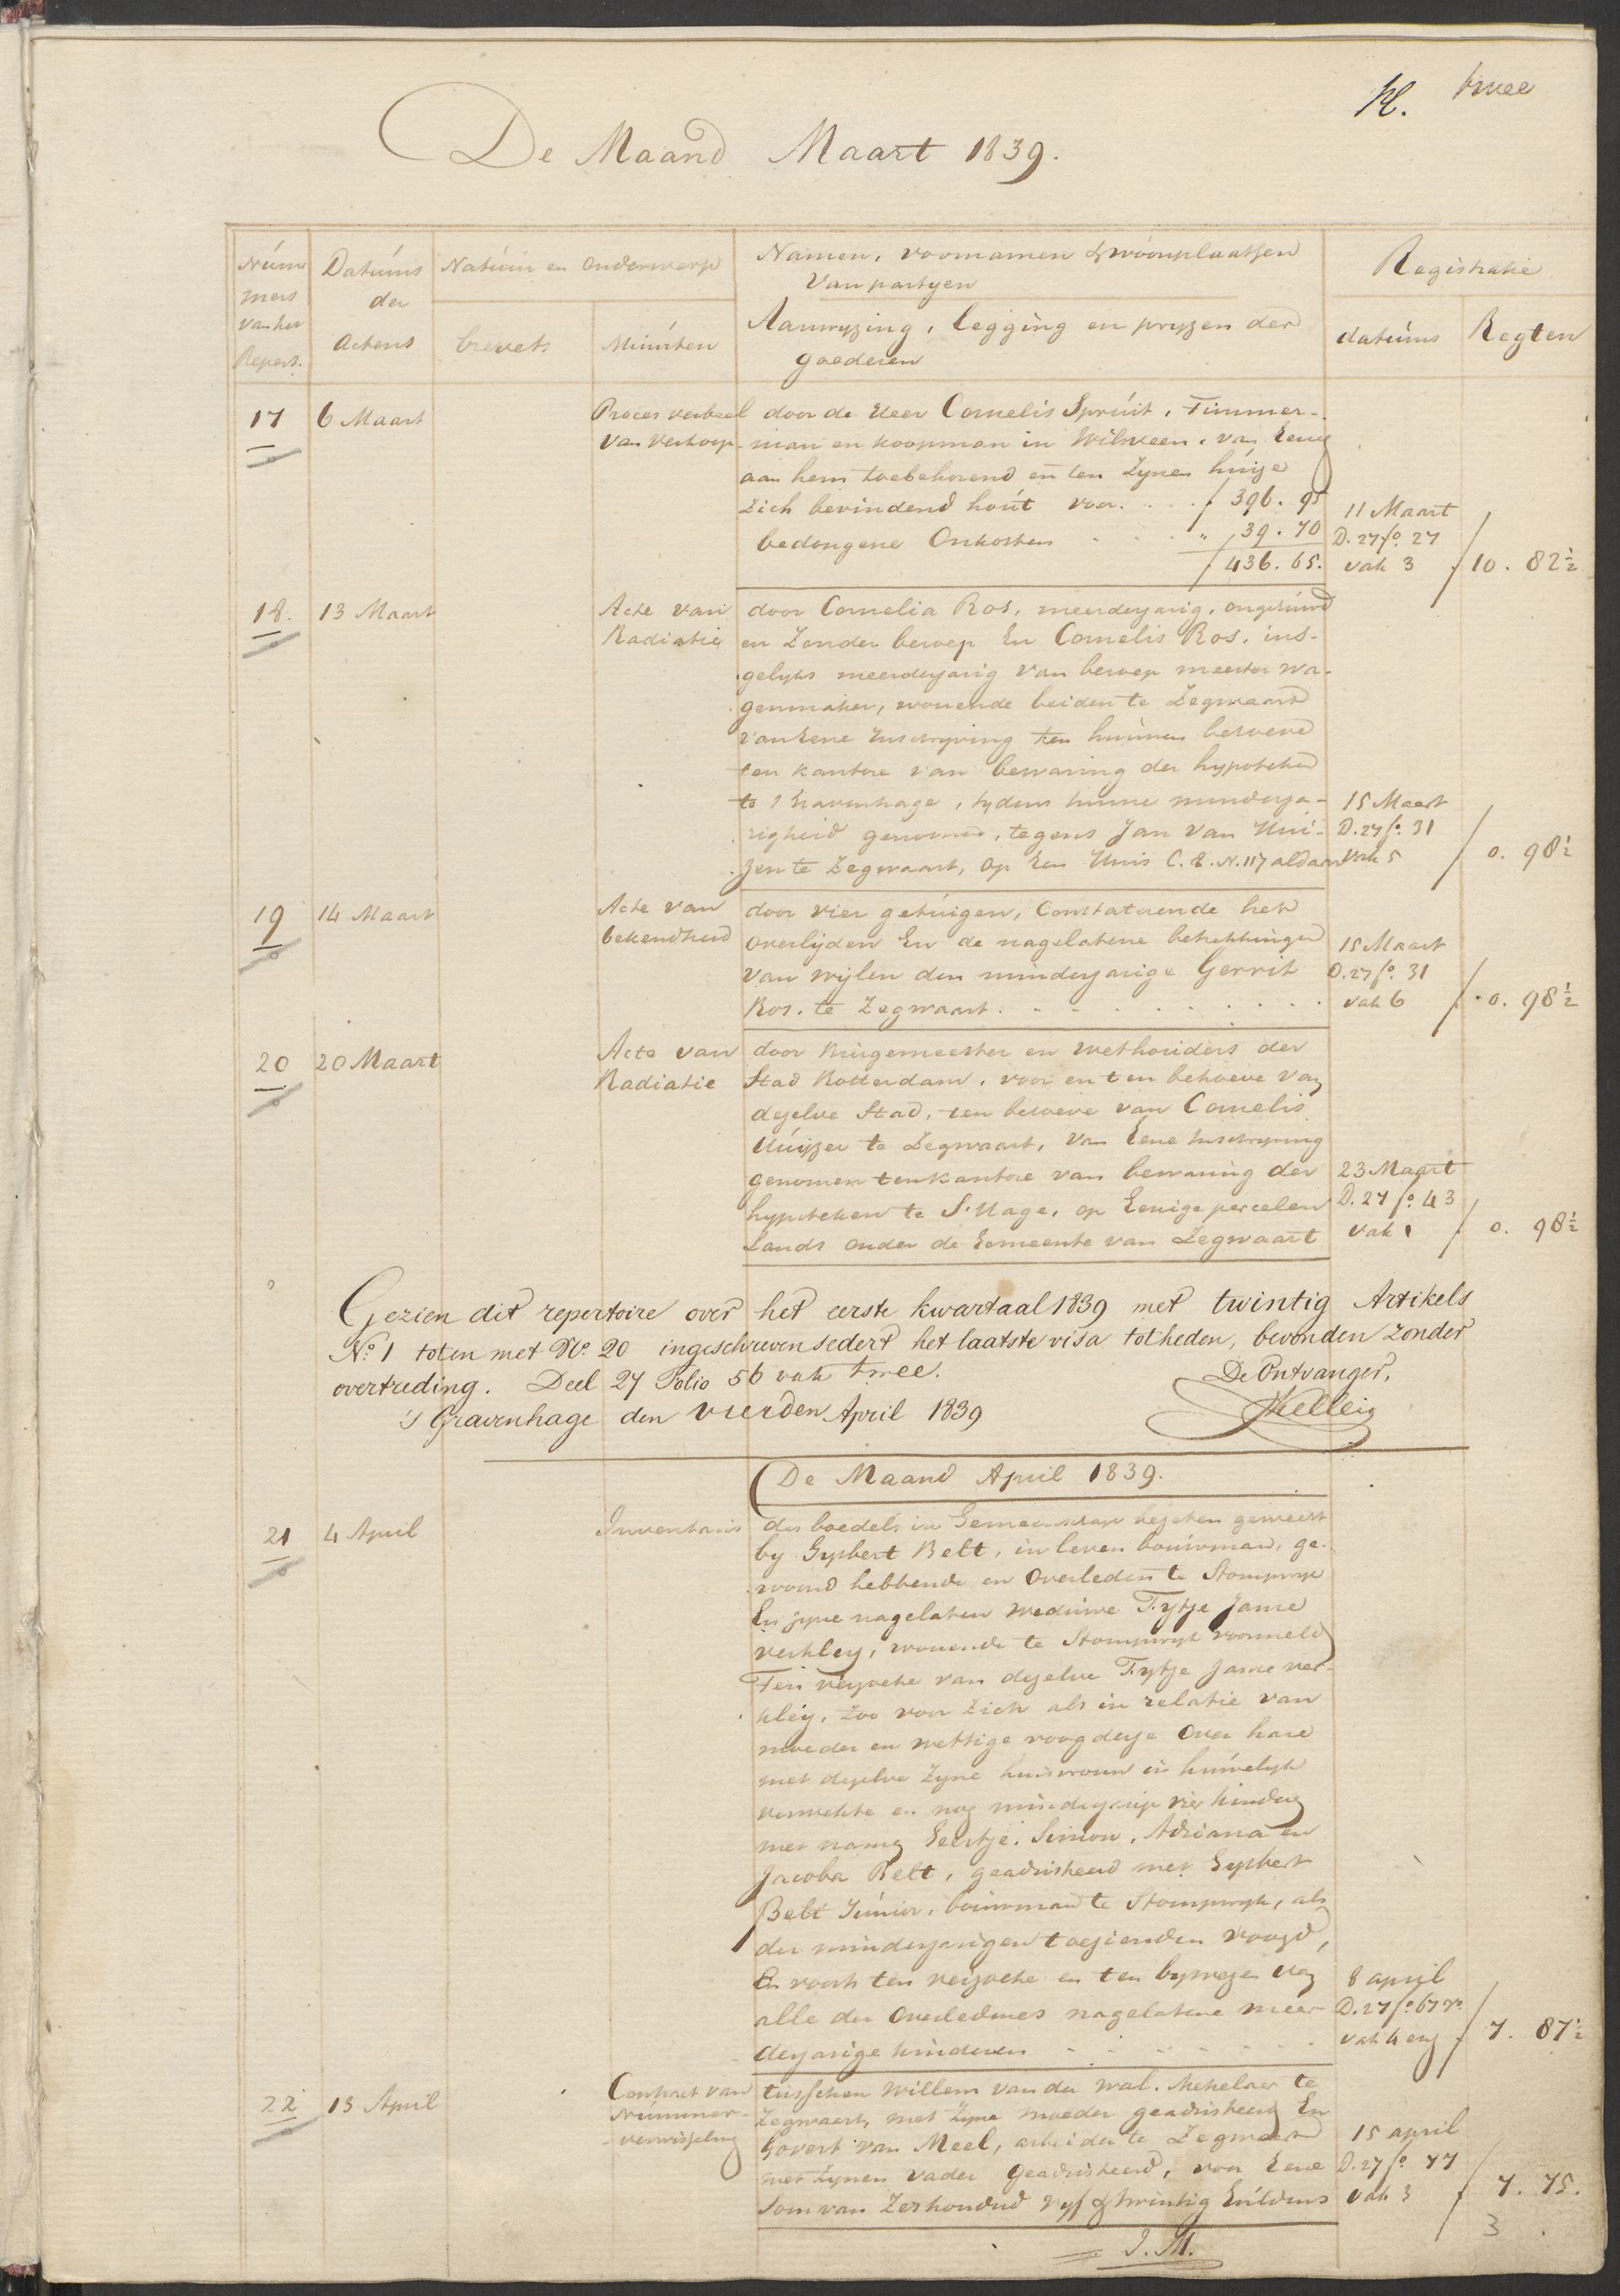 twee
De Maand Maart 1839.
Núm
mers
van het
Repert.
Datúms
der
Actens
Natúúr en Onderwerp
brevets
Minúten
Namen, voornamen & woonplaatsen
Van partyen
Aanwyzing, legging en pryzen der
goederen
Registratie
datúms
Regten
17
6 Maart
Proces verbaal
van verkoop
door de Heer Cornelis Sprúit, Timmer-
man en koopman in Wilsveen, van Eenig
aan hem toebehorend en ten Zynen húize
Zich bevindend hoút voor . . . . ƒ 396. 95
bedongene Onkosten . . . " 39. 70
ƒ 436. 65.
11 Maart
D. 27 fo. 27
vak 3
ƒ 10. 82½
18.
13 Maart
Acte van
Radiatie
door Cornelia Ros, meerderjarig, ongehúwd
en Zonder beroep En Cornelis Ros, ins-
gelyks meerderjarig van beroep meester wa-
genmaker, wonende beiden te Zegwaard
van Eene Inschryving ten húnnen behoeve
ten kantore van bewaring der hypotheken
te 's Gravenhage, tydens hunne minderja-
righeid genomen, tegens Jan van Hui-
zen te Zegwaart, op Een Huis C. 2. N. 117 aldaar
15 Maart
D. 27 fo. 31
Vak 5
ƒ 0. 98½
19
14 Maart
Acte van
bekendheid
door vier getúigen, Constaterende het
overlijden En de nagelatene betrekkingen
van wijlen den minderjarige Gerrit
Ros, te Zegwaart . . . . . . . .
15 Maart
D. 27 fo. 31
vak 6
ƒ 0. 98½
20
20 Maart
Acte van
Radiatie
door Búrgemeester en Wethouders der
Stad Rotterdam, voor en ten behoeve van
dezelve Stad, ten behoeve van Cornelis
Húijzer te Zegwaart, van Eene Inschryving
genomen ten kantore van bewaring der
hypoteken te S. Hage, op Eenige percelen
Lands onder de Gemeente van Zegwaart
23 Maart
D. 27 fo. 43
Vak 1
ƒ 0. 98½
Gezien dit repertoire over het eerste kwartaal 1839 met twintig Artikels
No. 1 tot en met No. 20 ingeschreven sedert het laatste visa tot heden, bevonden zonder
overtreding. Deel 27 Folio 56 vak twee.
De Ontvanger,
's Gravenhage den vierden April 1839
De Maand April 1839.
21
4 April
Inventaris
des boedels in Gemeenschap bezeten geweest
by Gysbert Belt, in leven boúwman, ge-
woond hebbende en Overleden te Stompwyk
En zyne nagelaten Weduwe Tytje Jansse
verkley, wonende te Stompwyk voormeld
Ten verzoeke van dezelve Tytje Jansse ver-
kley, Zoo voor Zich als in relatie van
moeder en wettige voogdesse Over hare
met dezelve Zyne huisvrouw in húwelyk
verwekte en nog minderjarige vier kinderen
met name Geertje, Simon, Adriana en
Jacoba Belt, geadsisteerd met Gysbert
Belt Júnior, boúwman te Stompwyk, als
der minderjarigen toezienden Voogd,
En voorts ten verzoeke en ten bywezen van
alle der Overledenes nagelatene meer-
derjarige kinderen . . . . . .
8 april
D. 27 fo. 67 vo.
vak 4 env
ƒ 7. 87½
22
13 April
Contract van
Númmer-
verwisseling
túsfchen Willem van der Wal, Mekelaer te
Zegwaart, met Zyne moeder geadsisteerd En
Govert van Meel, arbeider te Zegwaard
met Zynen vader Geadsisteerd, voor Eene
Som van Zeshonderd Vyf & twintig Guldens
15 april
D. 27 fo. 77
Vak 3
ƒ 7. 75.
3
J. M.